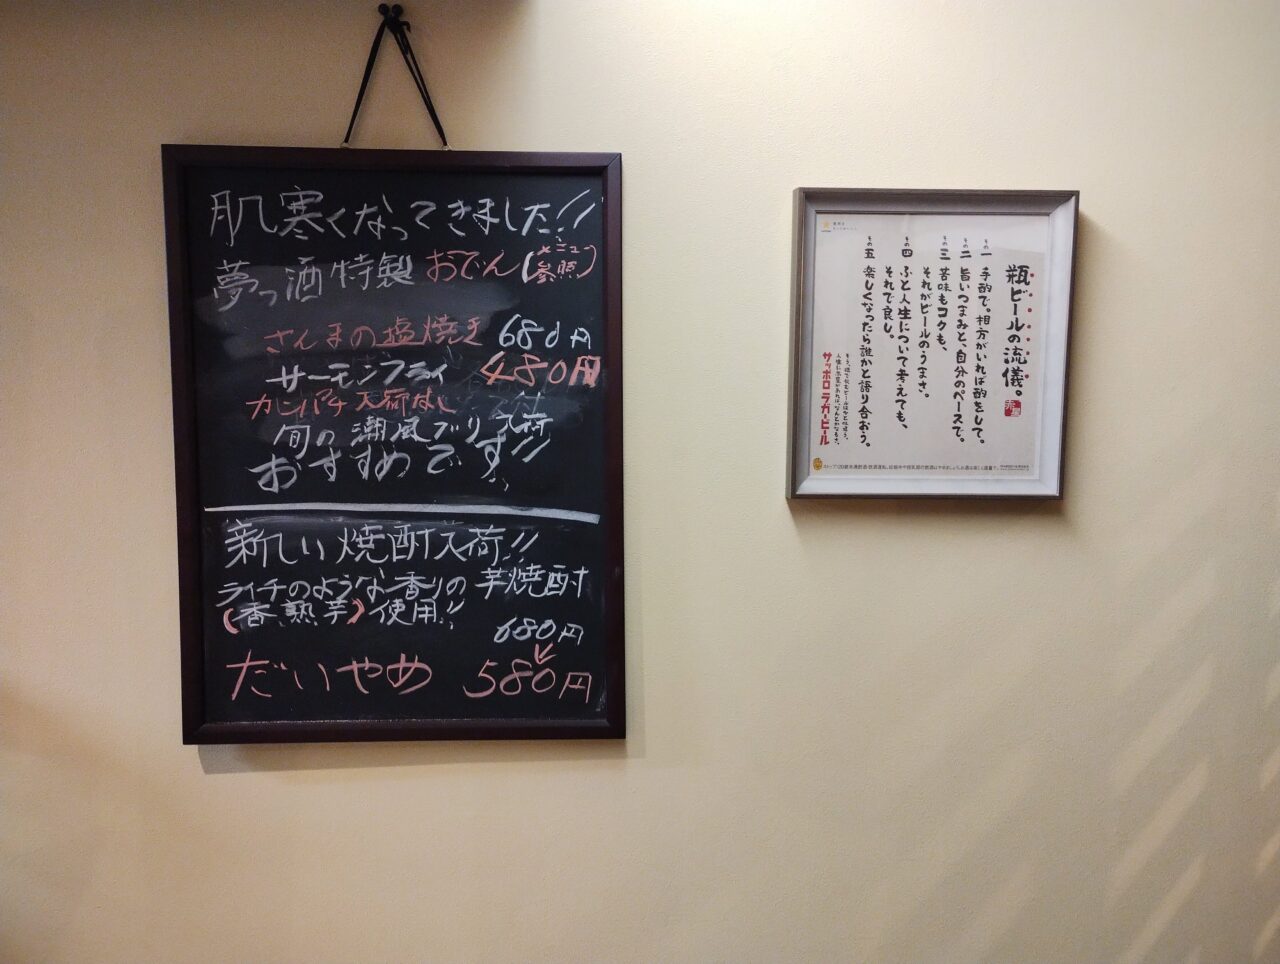 肌寒くなってきました!!
夢っ酒特製 おでん(メニュー参照)
さんまの塩焼き 680円
サーモンフライ 480円
カンパチ入荷なし
旬の潮風ブリ入荷
おすすめです!!
新しい焼酎入荷!!
ライチのような香りの芋焼酎
(香熟芋)使用!!
680円
だいやめ 580円
瓶ビールの流儀。
赤星
その一 手酌で。相方がいれば酌をして。
その二 旨いつまみと、自分のペースで。
その三 苦味もコクも、
それがビールのうまさ。
その四 ふと人生について考えても、
それで良し。
その五 楽しくなったら誰かと語り合おう。
サッポロラガービール